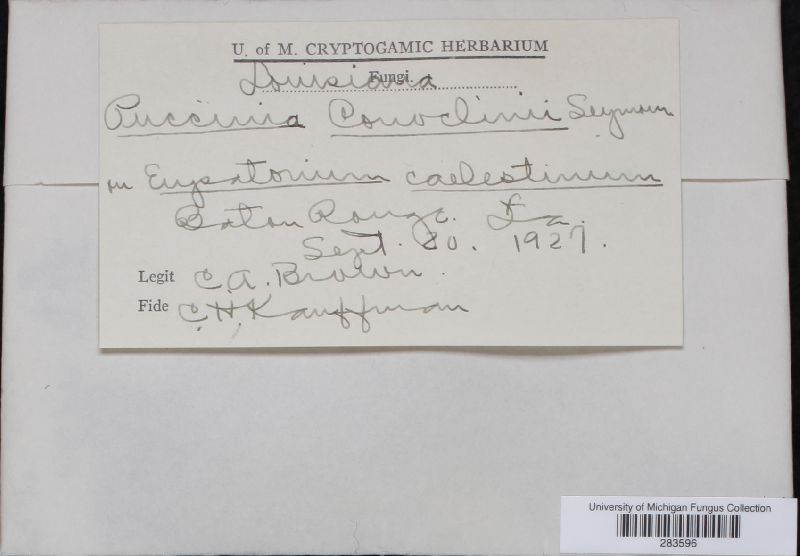 U. of M. CRYPTOGAMIC HERBARIUM
Louisiana
Fungi.
Puccinia Conoclinii Seymour
on Eupatorium caelestinum
Baton Rouge. La.
Sept. 20. 1927.
Legit C.A. Brown.
Fide C.H. Kauffman
University of Michigan Fungus Collection
283596